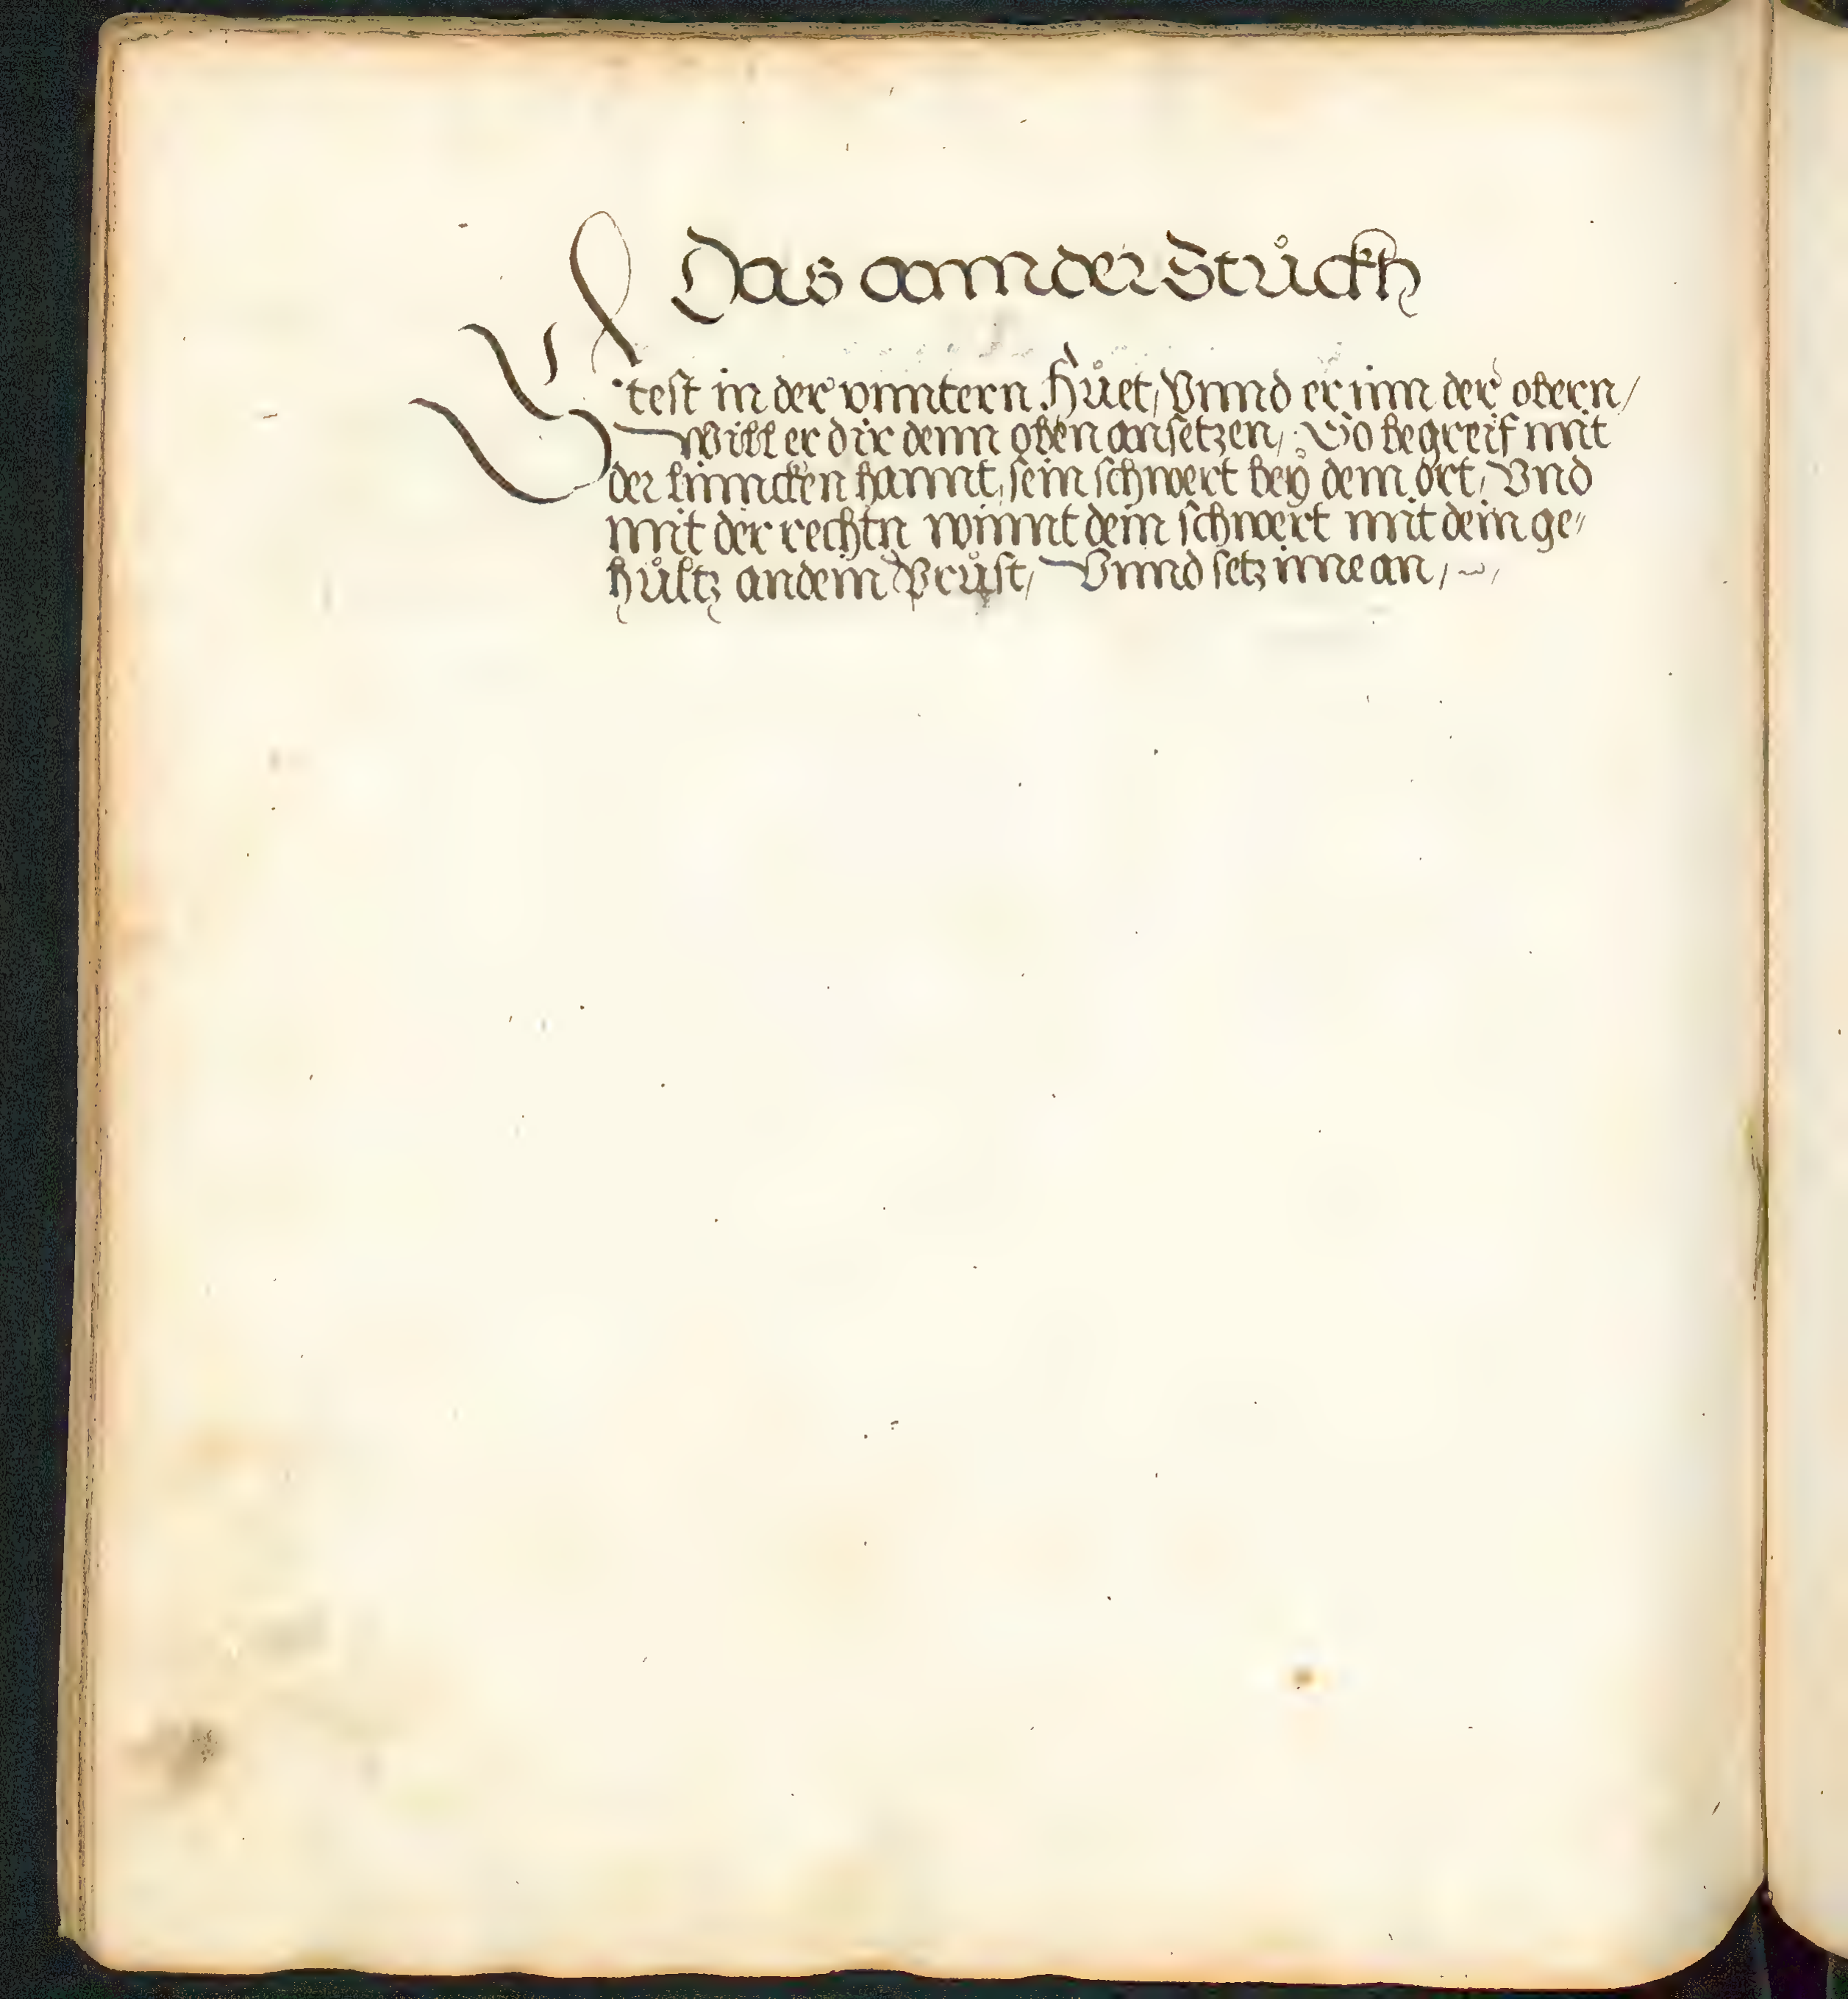 Das annder Stuckh
Stest in der vnntern Hůet, Vnnd er inn der obern,
Will er dir denn oben ansetzen, So begreif mit
der linncken hannt, sein schwert beÿ dem ort, Vnd
mit der rechtn nimmt dein schwert mit dem ge„
hůltz an dein Průst, Vnnd setz imme an,